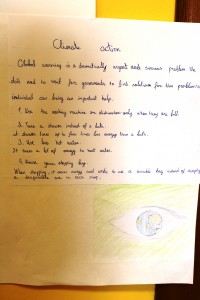 Climate action
Global warming is a dramatically urgent and serious problem. We
don't need to wait for governments to find solutions for this problem:
individual can bring an important help.
1. Use the washing machine or dishwasher only when they are full.
2. Take a shower instead of a bath.
A shower takes up to four times less energy than a bath.
3. Use less hot water.
It takes a lot of energy to heat water.
4. Reuse your shopping bag.
When shopping, it saves energy and waste to use a reusable bag instead of accepting
a disposable one in each shop.